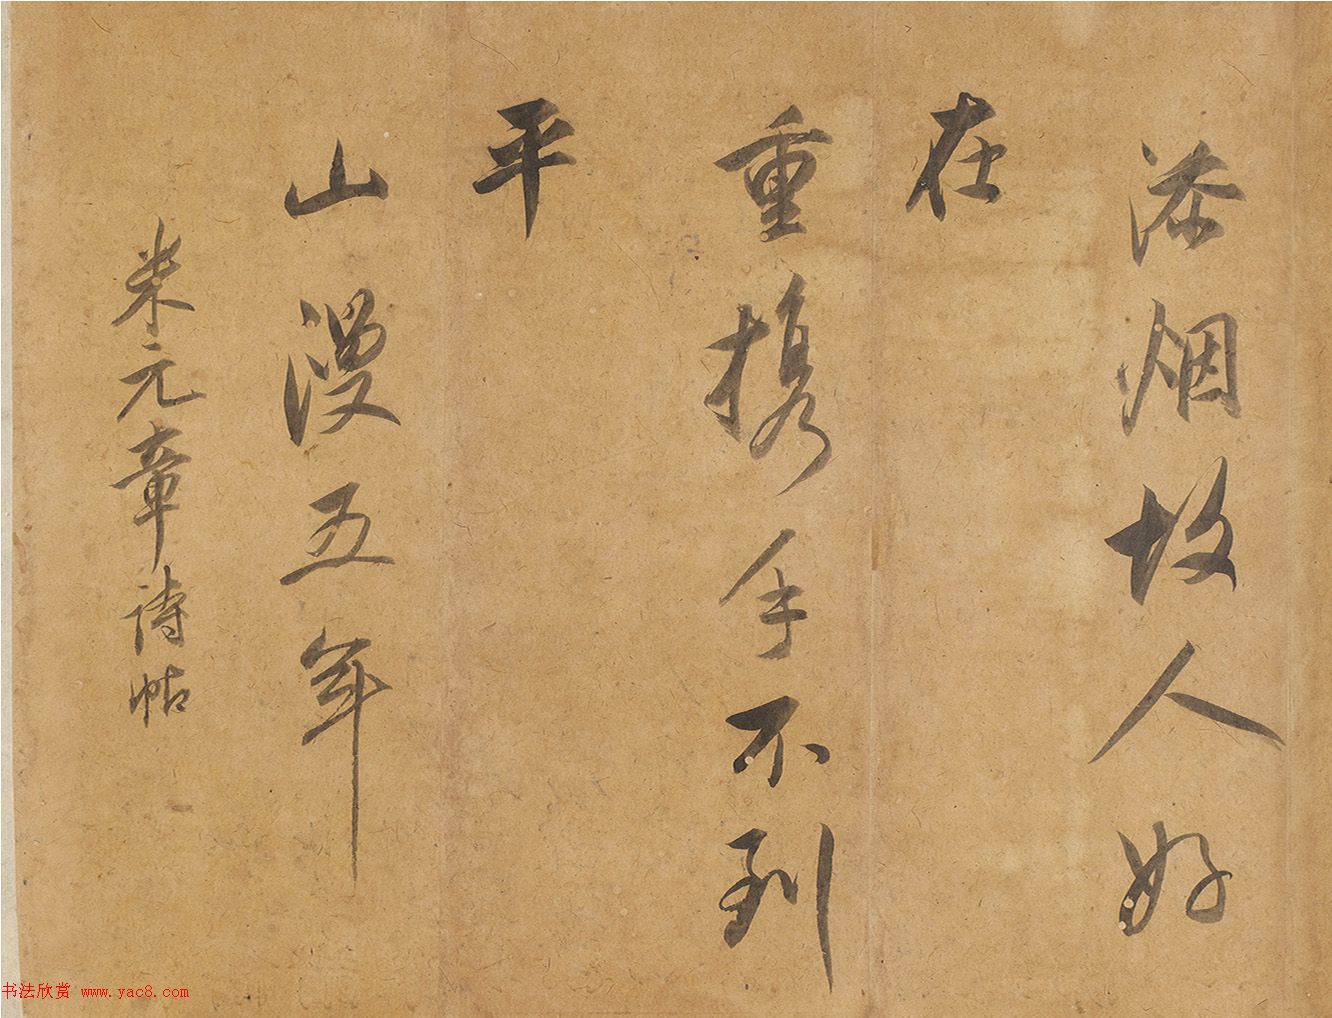 添烟故人好
在
重携手不到
平
山漫五年
米元章诗帖
书法欣赏 www.yac8.com